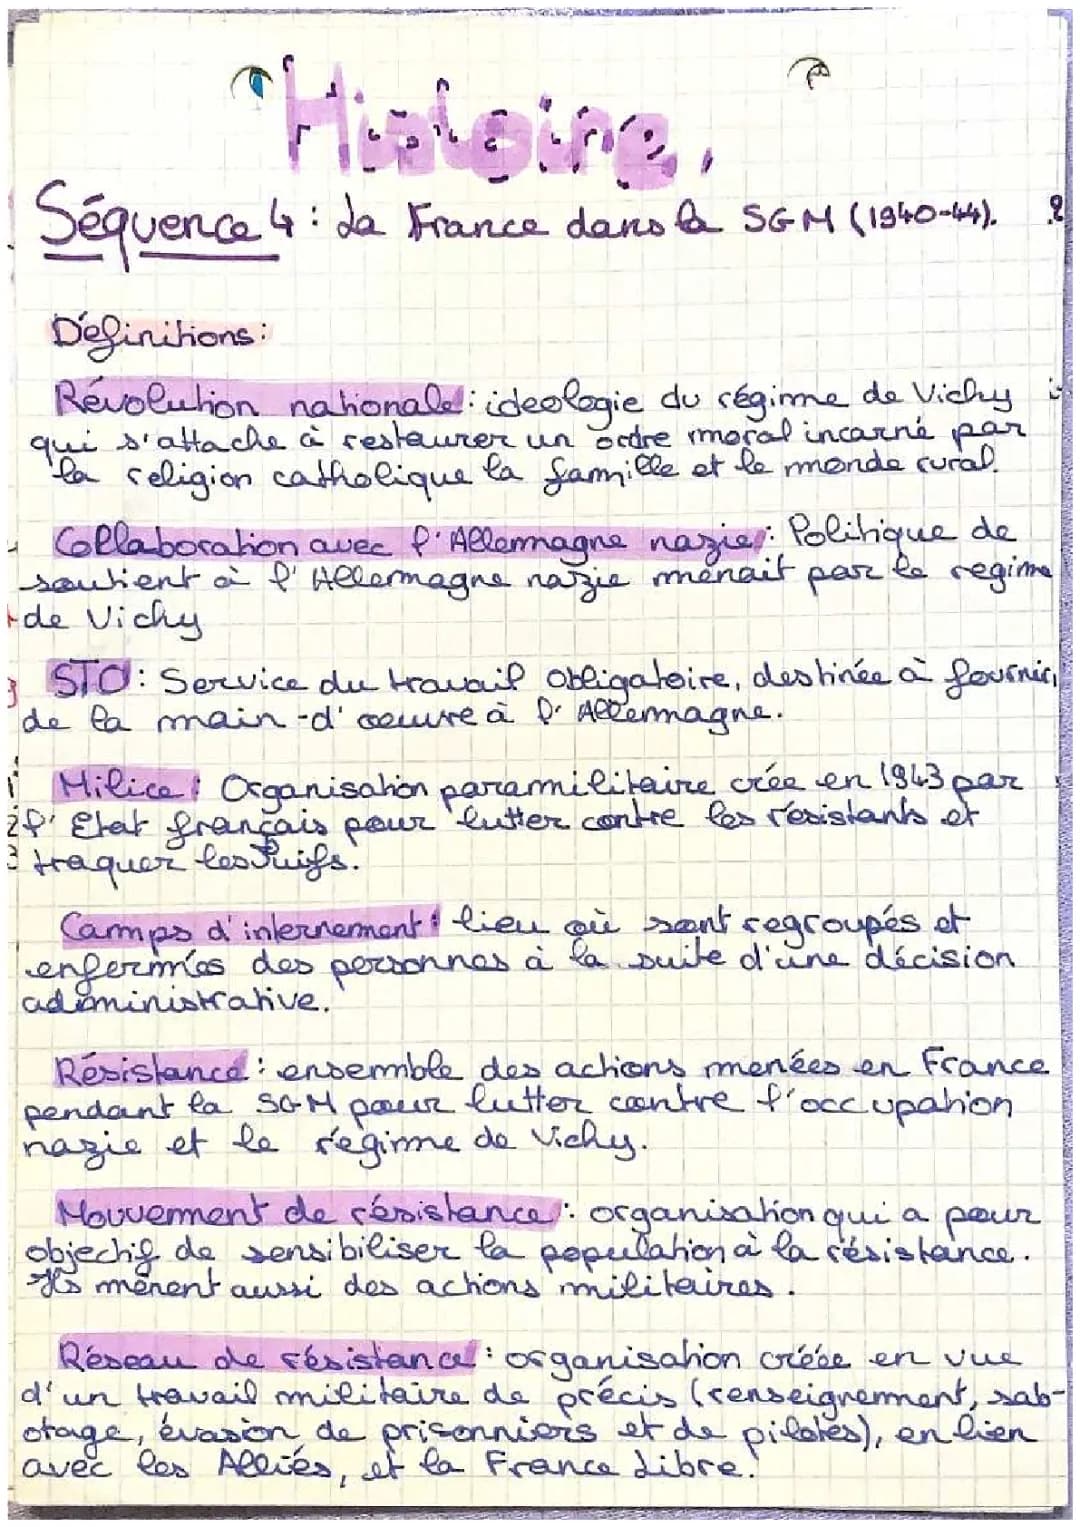 Histoire.
Séquence 4 : La France dans la SGM (1940-44).
Définitions:
Révolution nationale : ideologie du régime de Vichy
qui s'attache à restaurer un ordre moral incarné par
la religion catholique la famille et le monde rural.
Collaboration avec l'Allemagne nazie : Politique de
soutient à l'Allemagne nazie menait par le regime
de Vichy
STO : Service du travail obligatoire, destinée à fournir,
de la main-d'oeuvre à l'Allemagne.
Milice : Organisation paramilitaire crée en 1943 par
l'Etat français pour lutter contre les résistants et
traquer les Juifs.
Camps d'internement : lieu où sont regroupés et
enfermés des personnes à la suite d'une décision
administrative.
Résistance : ensemble des actions menées en France
pendant la SGM pour lutter contre l'occupation
nazie et le régime de Vichy.
Mouvement de résistance : organisation qui a pour
objectif de sensibiliser la population à la résistance.
Ils mènent aussi des actions militaires.
Réseau de résistance : organisation créée en vue
d'un travail militaire de précis (renseignement, sab-
otage, évasion de prisonniers et de pilotes), en lien
avec les Alliés, et la France Libre.